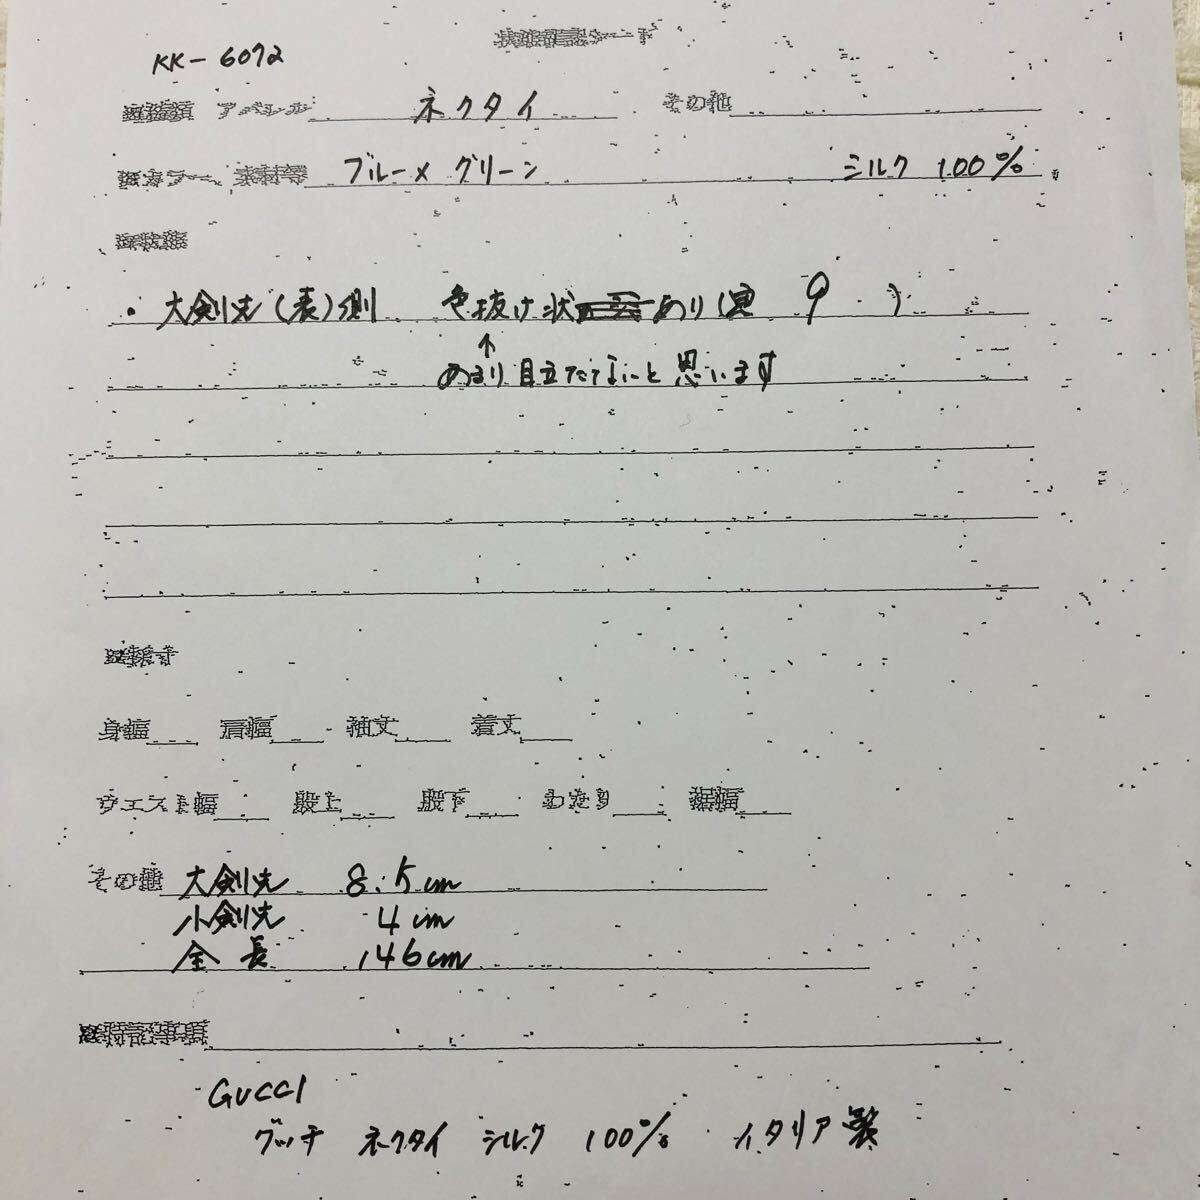 KK-6072
アパレル ネクタイ その他
カラー、素材等 ブルーメ グリーン シルク 100%
・大剣先(表)側 色抜け状あり(写 9 )
↑
あまり目立たないと思います
身幅 肩幅 袖丈 着丈
ウエスト幅 股上 股下 わたり 裾幅
その他 大剣先 8.5cm
小剣先 4cm
全長 146cm
特記事項
GUCCI
グッチ ネクタイ シルク 100% イタリア製